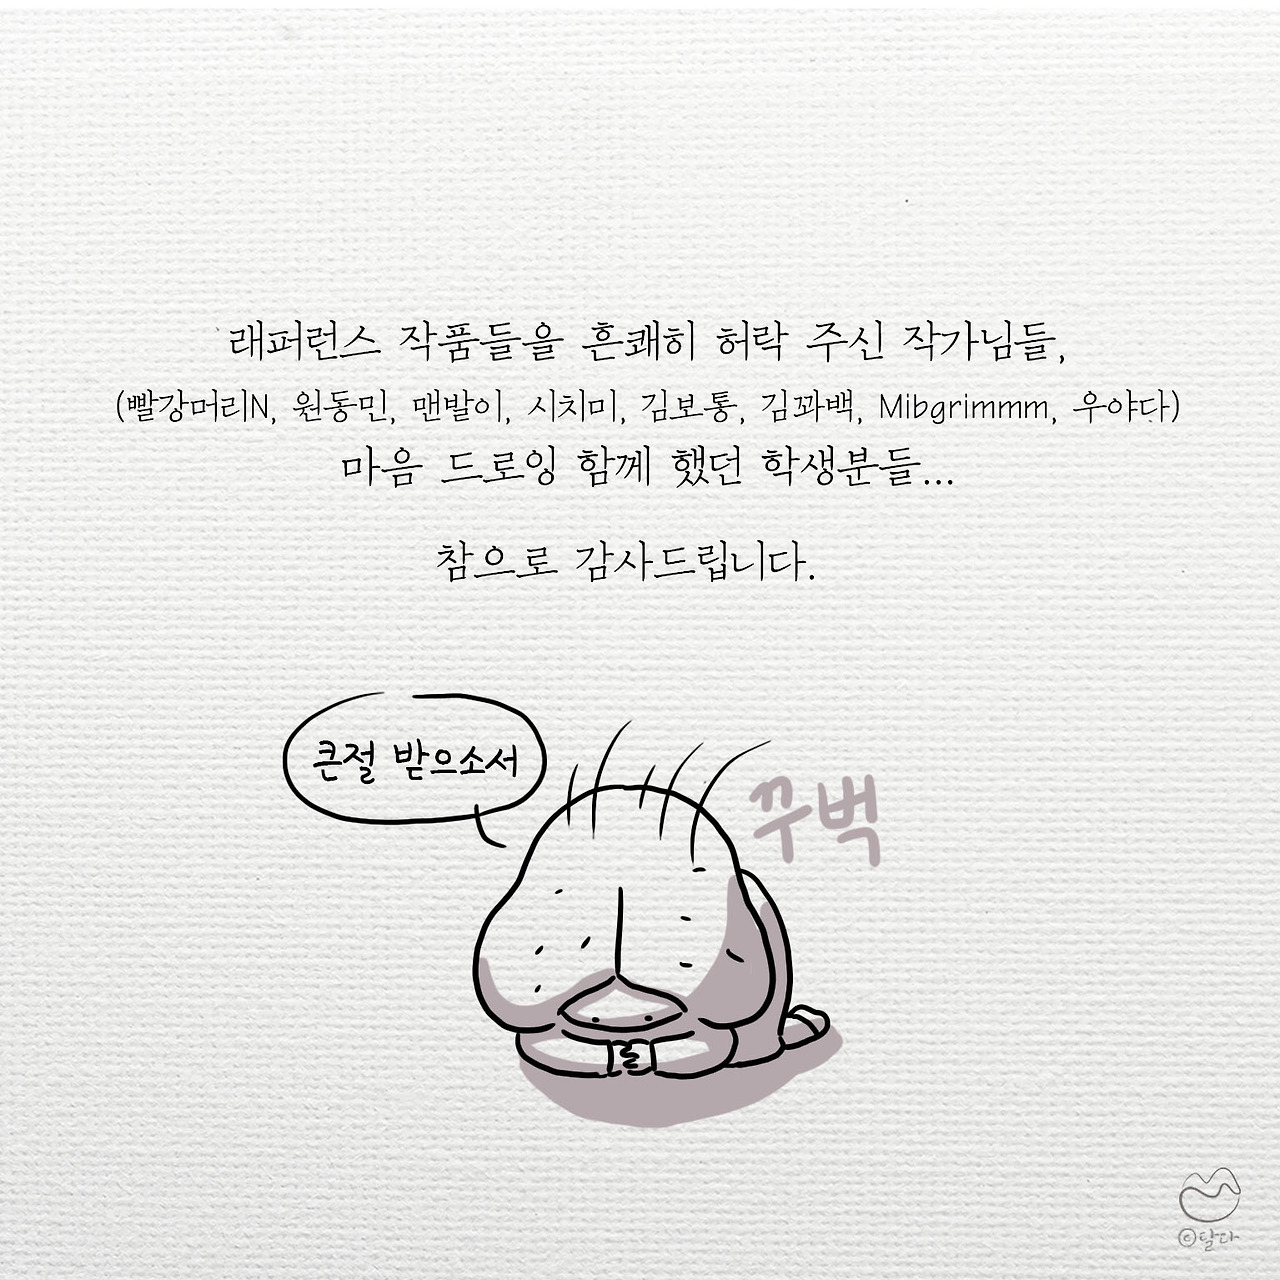 래퍼런스 작품들을 흔쾌히 허락 주신 작가님들,
(빨강머리N, 원동민, 맨발이, 시치미, 김보통, 김꽈백, Mibgrimmm, 우야다)
마음 드로잉 함께 했던 학생분들...
참으로 감사드립니다.
큰절 받으소서
꾸벅
©달다